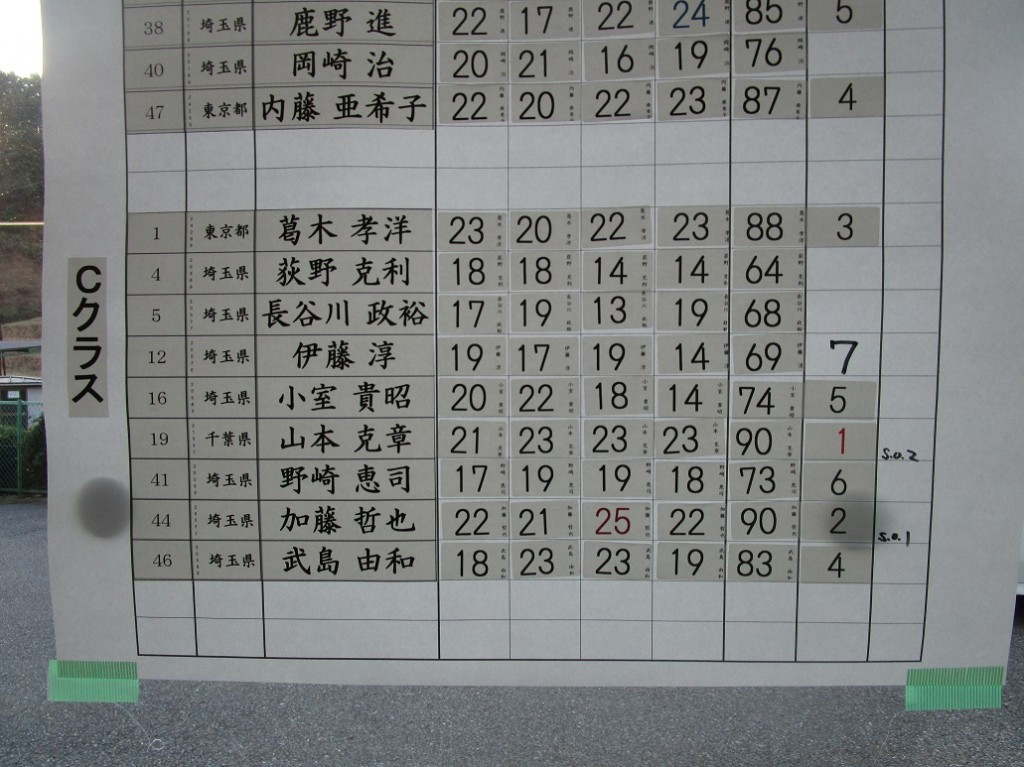 38 埼玉県 鹿野 進 22 17 22 24 85 5
40 埼玉県 岡崎 治 20 21 16 19 76
47 東京都 内藤 亜希子 22 20 22 23 87 4
Cクラス
1 東京都 葛木 孝洋 23 20 22 23 88 3
4 埼玉県 荻野 克利 18 18 14 14 64
5 埼玉県 長谷川 政裕 17 19 13 19 68
12 埼玉県 伊藤 淳 19 17 19 14 69 7
16 埼玉県 小室 貴昭 20 22 18 14 74 5
19 千葉県 山本 克章 21 23 23 23 90 1 s.o.2
41 埼玉県 野崎 恵司 17 19 19 18 73 6
44 埼玉県 加藤 哲也 22 21 25 22 90 2 s.o.1
46 埼玉県 武島 由和 18 23 23 19 83 4